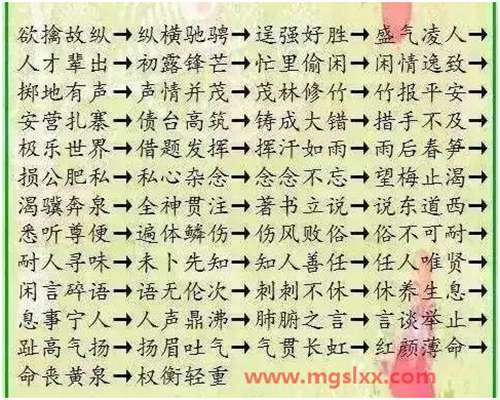 欲擒故纵→纵横驰骋→逞强好胜→盛气凌人→
人才辈出→初露锋芒→忙里偷闲→闲情逸致→
掷地有声→声情并茂→茂林修竹→竹报平安→
安营扎寨→债台高筑→铸成大错→措手不及→
极乐世界→借题发挥→挥汗如雨→雨后春笋→
损公肥私→私心杂念→念念不忘→望梅止渴→
渴骥奔泉→全神贯注→著书立说→说东道西→
悉听尊便→遍体鳞伤→伤风败俗→俗不可耐→
耐人寻味→未卜先知→知人善任→任人唯贤→
闲言碎语→语无伦次→刺刺不休→休养生息→
息事宁人→人声鼎沸→肺腑之言→言谈举止→
趾高气扬→扬眉吐气→气贯长虹→红颜薄命→
命丧黄泉→权衡轻重
www.mgslxx.com